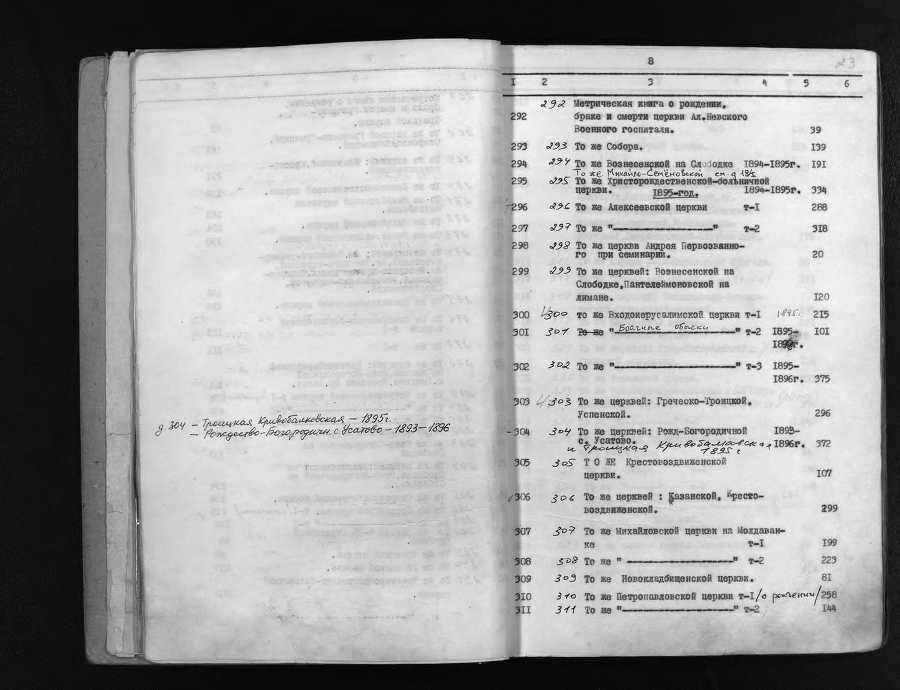 д. 304 – Троицкая Кривобалковская – 1895 г.
– Рождество-Богородичн. с. Усатово – 1893–1896
8
23
1 2 3 4 5 6
292 292 Метрическая книга о рождении,
браке и смерти церкви Ал.Невского
Военного госпиталя. 39
293 293 То же Собора. 139
294 294 То же Вознесенской на Слободке 1894-1895г. 191
То же Михайло-Семёновской см. д.
295 295 То же Христорождественской-больничной
церкви. 1894-1895г. 334
1895-год.
296 296 То же Алексеевской церкви т-I 288
297 297 То же "————————" т-2 318
298 298 То же церкви Андрея Первозванно-
го при семинарии. 20
299 299 То же церквей: Вознесенской на
Слободке,Пантелеймоновской на
лимане. 120
300 300 то же Входоиерусалимской церкви т-I 1895г. 215
301 301 То же "Брачные обыски" т-2 1895- 101
302 302 То же "————————" т-3 1895-
1896г. 375
303 303 То же церквей: Греческо-Троицкой,
Успенской. 296
304 304 То же церквей: Рожд-Богородичной 1893-
с. Усатово. 1896г. 372
и Троицкая Кривобалковская
1895 г
305 305 Т О ЖЕ Крестовоздвиженской
церкви. 107
306 306 То же церквей : Казанской, Кресто-
воздвиженской. 299
307 307 То же Михайловской церкви на Молдаван-
ке т-I 199
308 308 То же " ————————" т-2 223
309 309 То же Новокладбищенской церкви. 81
310 310 То же Петропавловской церкви т-I /о рождении/ 258
311 311 То же "————————" т-2 144